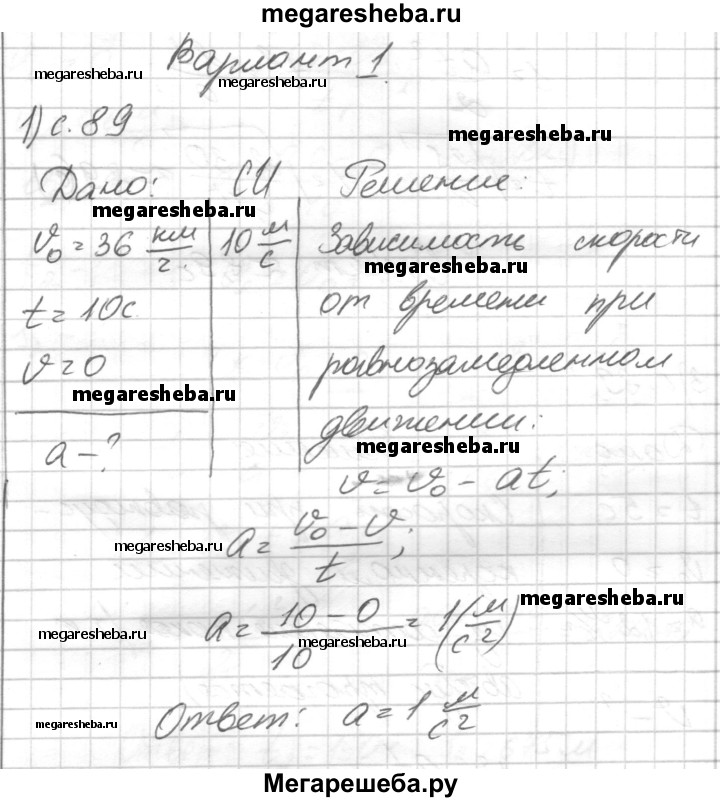 megaresheba.ru
Вариант 1
megaresheba.ru
megaresheba.ru
1) с. 89
megaresheba.ru
Дано: СИ Решение:
megaresheba.ru
v₀ = 36 км/г. 10 м/с Зависимость скорости
megaresheba.ru
t = 10с от времени при
v = 0 равнозамедленном
megaresheba.ru
движении:
megaresheba.ru
a - ?
v = v₀ - at;
megaresheba.ru
a = (v₀ - v)/t;
megaresheba.ru
a = (10 - 0)/10 = 1 (м/с²)
megaresheba.ru
megaresheba.ru
Ответ: a = 1 м/с²
megaresheba.ru
Мегарешеба.ру